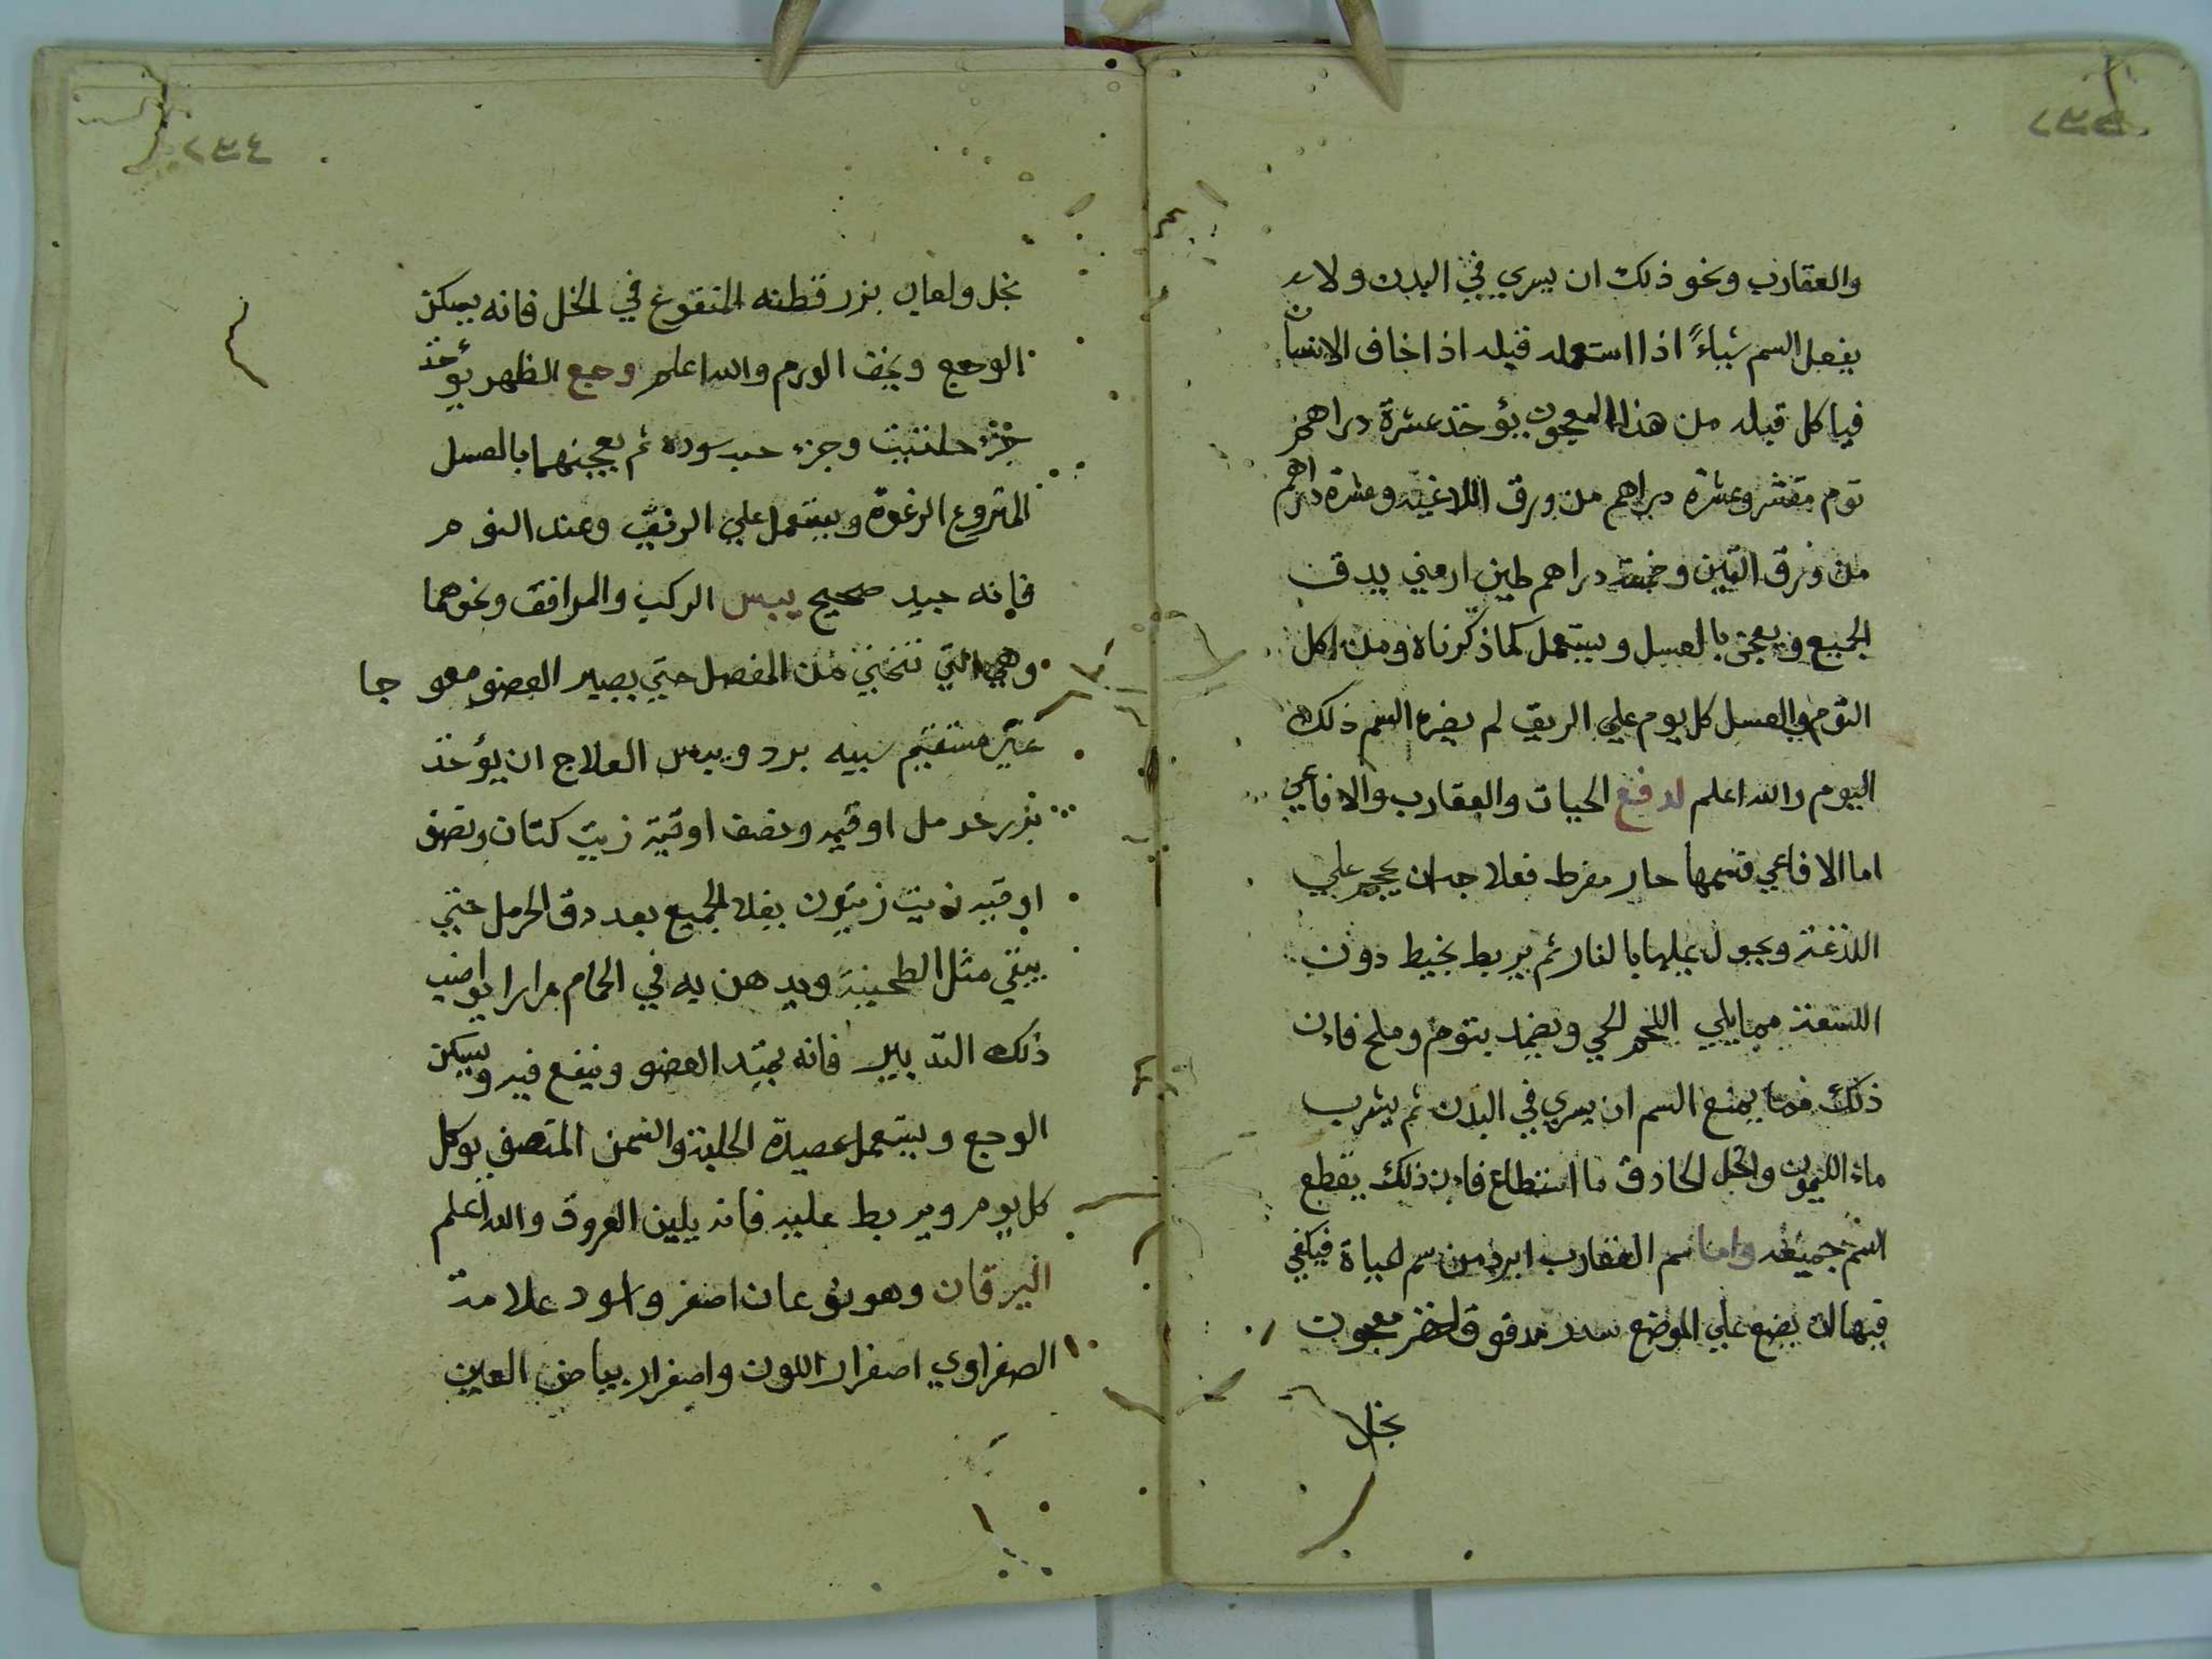 والعقارب ونحو ذلك ان يسري في البدن ولا
يفعل السم شياءً اذا استعمله قبله اذا خاف الانسان
فياكل قبله من هذا المعجون يؤخذ عشرة دراهم
توم مقشر وعشرة دراهم من ورق اللاغيه وعشرة دراهم
من ورق التين وخمسة دراهم طين ارمني يدق
الجميع ويعجن بالعسل ويستعمل كما ذكرناه ومن اكل
التوم والعسل كل يوم علي الريق لم يضره السم ذلك
اليوم والله اعلم لدفع الحيات والعقارب والافاعي
اما الافاعي فسمها حار مفرط فعلاجه ان يحجم علي
اللذغة ويجول بالنار ثم يربط بخيط دون
اللسعة مما يلي اللحم الحي ويضمد بتوم وملح فان
ذلك مما يمنع السم ان يسري في البدن ثم يشرب
ماء الليمون والخل الحادق ما استطاع فان ذلك يقطع
السم جميعه واما سم العقارب ابرد من سم الحياة فيكفي
فيها ان يضع علي الموضع سدر مدقوق اخضر معجون
بخل
٢٣٤
بخل ولعاب بزر قطنه المنقوع في الخل فانه يسكن
الوجع ويخف الورم والله اعلم وجع الظهر يؤخذ
جزء حلتيت وجزء حب سوده ثم يعجنهما بالعسل
المنزوع الرغوة ويستعمل علي الريق وعند النوم
فانه جيد صحيح يبس الركب والمرافق ونحوهما
وهي التي تنحني من المفصل حتي يصير العضو معوجا
غير مستقيم سببه برد ويبس العلاج ان يؤخذ
بزر حرمل اوقيه ونصف اوقية زيت كتان ونصف
اوقيه زيت زيتون يغلا الجميع بعد دق الحرمل حتي
يبقي مثل الطحينة ويدهن به في الحمام مرارا يواضب
ذلك التدبير فانه يمتد العضو وينفع فيه ويسكن
الوجع ويستعمل عصيدة الحلبة والسمن المتصفي يوكل
كل يوم ويربط عليه فانه يلين العروق والله اعلم
اليرقان وهو نوعان اصفر واسود علامة
الصفراوي اصفرار اللون واصفرار بياض العين